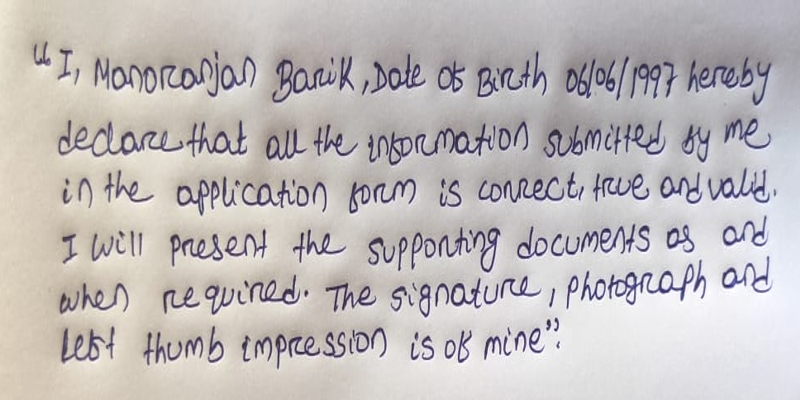 "I, Manoranjan Barik, Date of Birth 06/06/1997 hereby
declare that all the information submitted by me
in the application form is correct, true and valid.
I will present the supporting documents as and
when required. The signature, photograph and
left thumb impression is of mine".